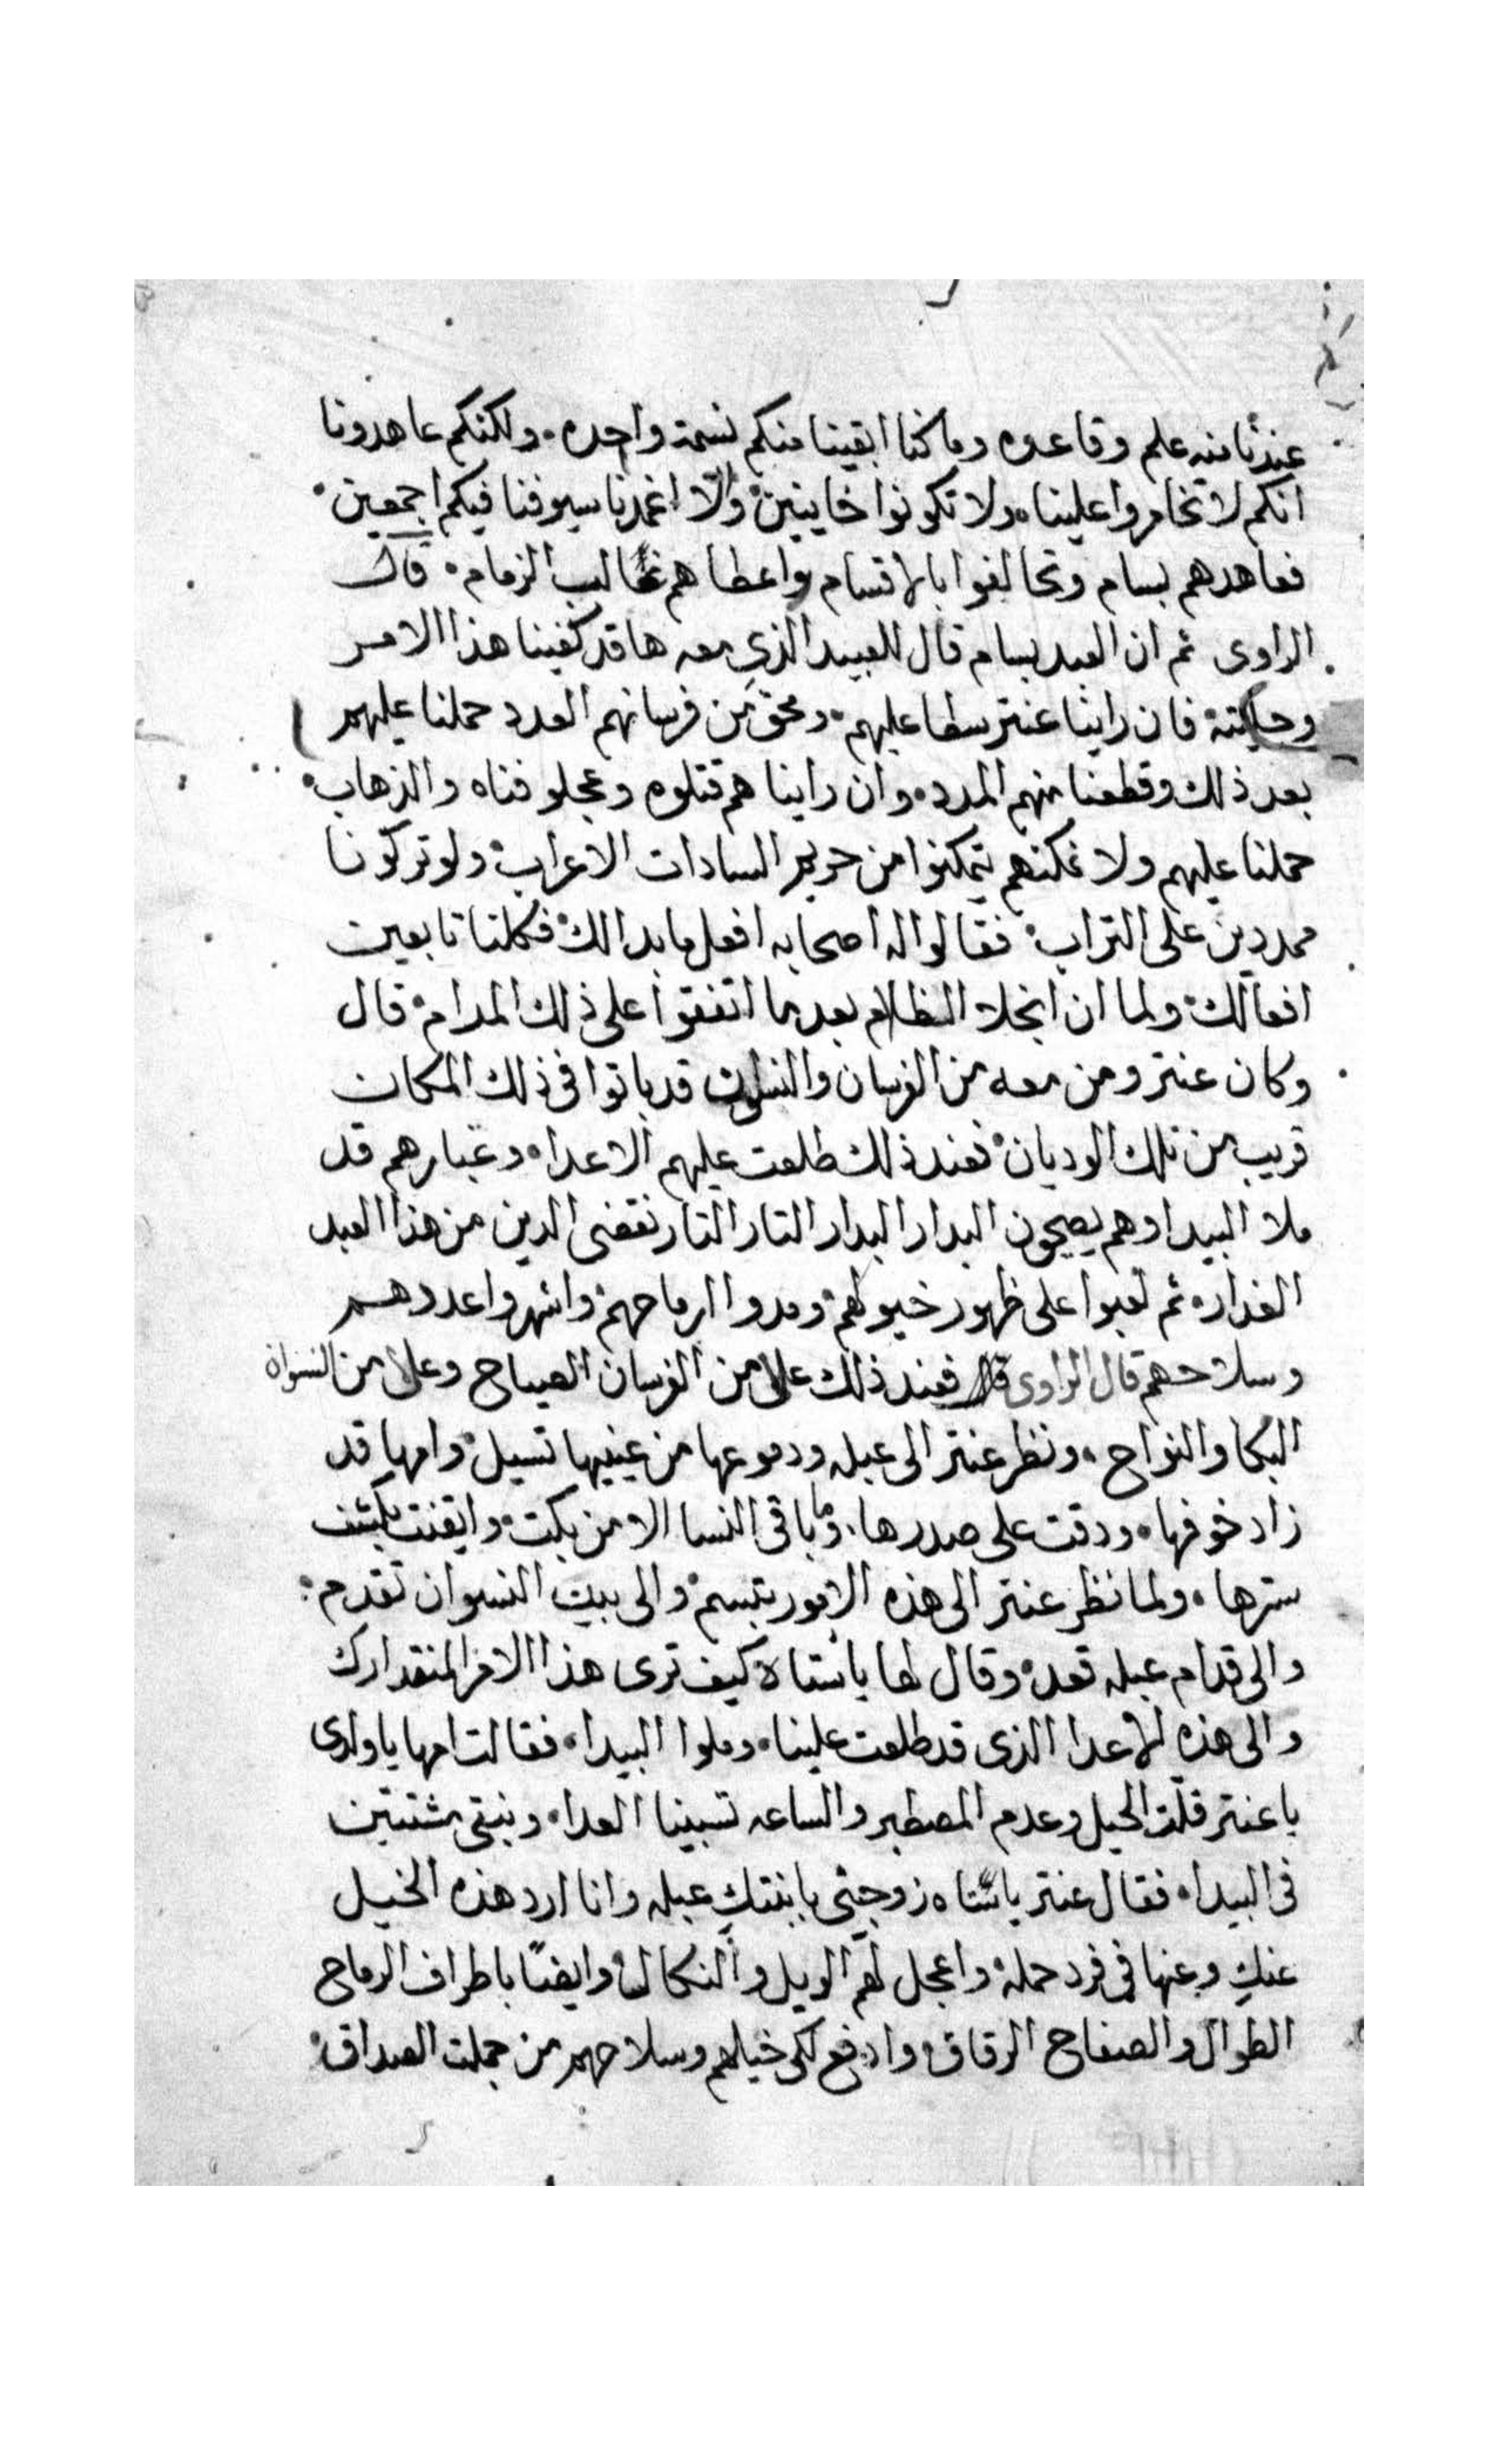 عندنا منه علم وقاعده وما كنا ابقينا منكم نسمة واحده ولكنكم عاهدونا
انكم لا تخامروا علينا ولا تكونوا خاينين والّا اغمدنا سيوفنا فيكم اجمعين
فعاهدهم بسام وتحالفوا بالاقسام واعطاهم الزمام قال
الراوى ثم ان العبد بسام قال للعبيد الذي معه ها قد كفينا هذا الامر
فان راينا عنتر سطا عليهم ومحق من فرسانهم العدد حملنا عليهم
بعد ذلك وقطعنا منهم المدد وان راينا هم قتلوه وعجلو فناه والذهاب
حملنا عليهم ولا نمكنهم يتمكنوا من حريم السادات الاعراب ولو تركونا
ممددين على التراب فقالوا له اصحابه افعل ما بدا لك فكلنا تابعين
افعالك ولما ان انجلا الظلام بعد ما اتفقوا على ذلك المرام قال
وكان عنتر ومن معه من الفرسان والنسوان قد باتوا فى ذلك المكان
قريب من تلك الوديان فعند ذلك طلعت عليهم الاعدا وغبارهم قد
ملا البيدا وهم يصيحون البدار البدار التار التار نقضى الدين من هذا العبد
الغدار ثم لعبوا على ظهور خيولهم ومدوا ارماحهم واشهروا عددهم
وسلاحهم قال الراوى فعند ذلك علا من الفرسان الصياح وعلا من النسوان
البكا والنواح ونظر عنتر الى عبله ودموعها من عينيها تسيل وامها قد
زاد خوفها ودقت على صدرها وما باقى النسا الا من بكت وايقنت بكشف
سترها ولما نظر عنتر الى هذه الامور تبسم والى بيت النسوان تقدم
والى قدام عبله قعد وقال لها ياستاه كيف ترى هذا الامر المتقدارك
والى هذه الاعدا الذى قد طلعت علينا وملوا البيدا فقالت امها ياولدى
يا عنتر قلّت الحيل وعدم المصطبر والساعه تسبينا العدا ونبقى مشتتين
فى البيدا فقال عنتر ياستاه زوجينى بابنتك عبله وانا ارد هذه الخيل
عنكِ وعنها فى فرد حملة واعجل لهم الويل والنكال وايضًا باطراف الرماح
الطوال والصفاح الرقاق وادفع لكى خيلهم وسلاحهم من جملت الصداق